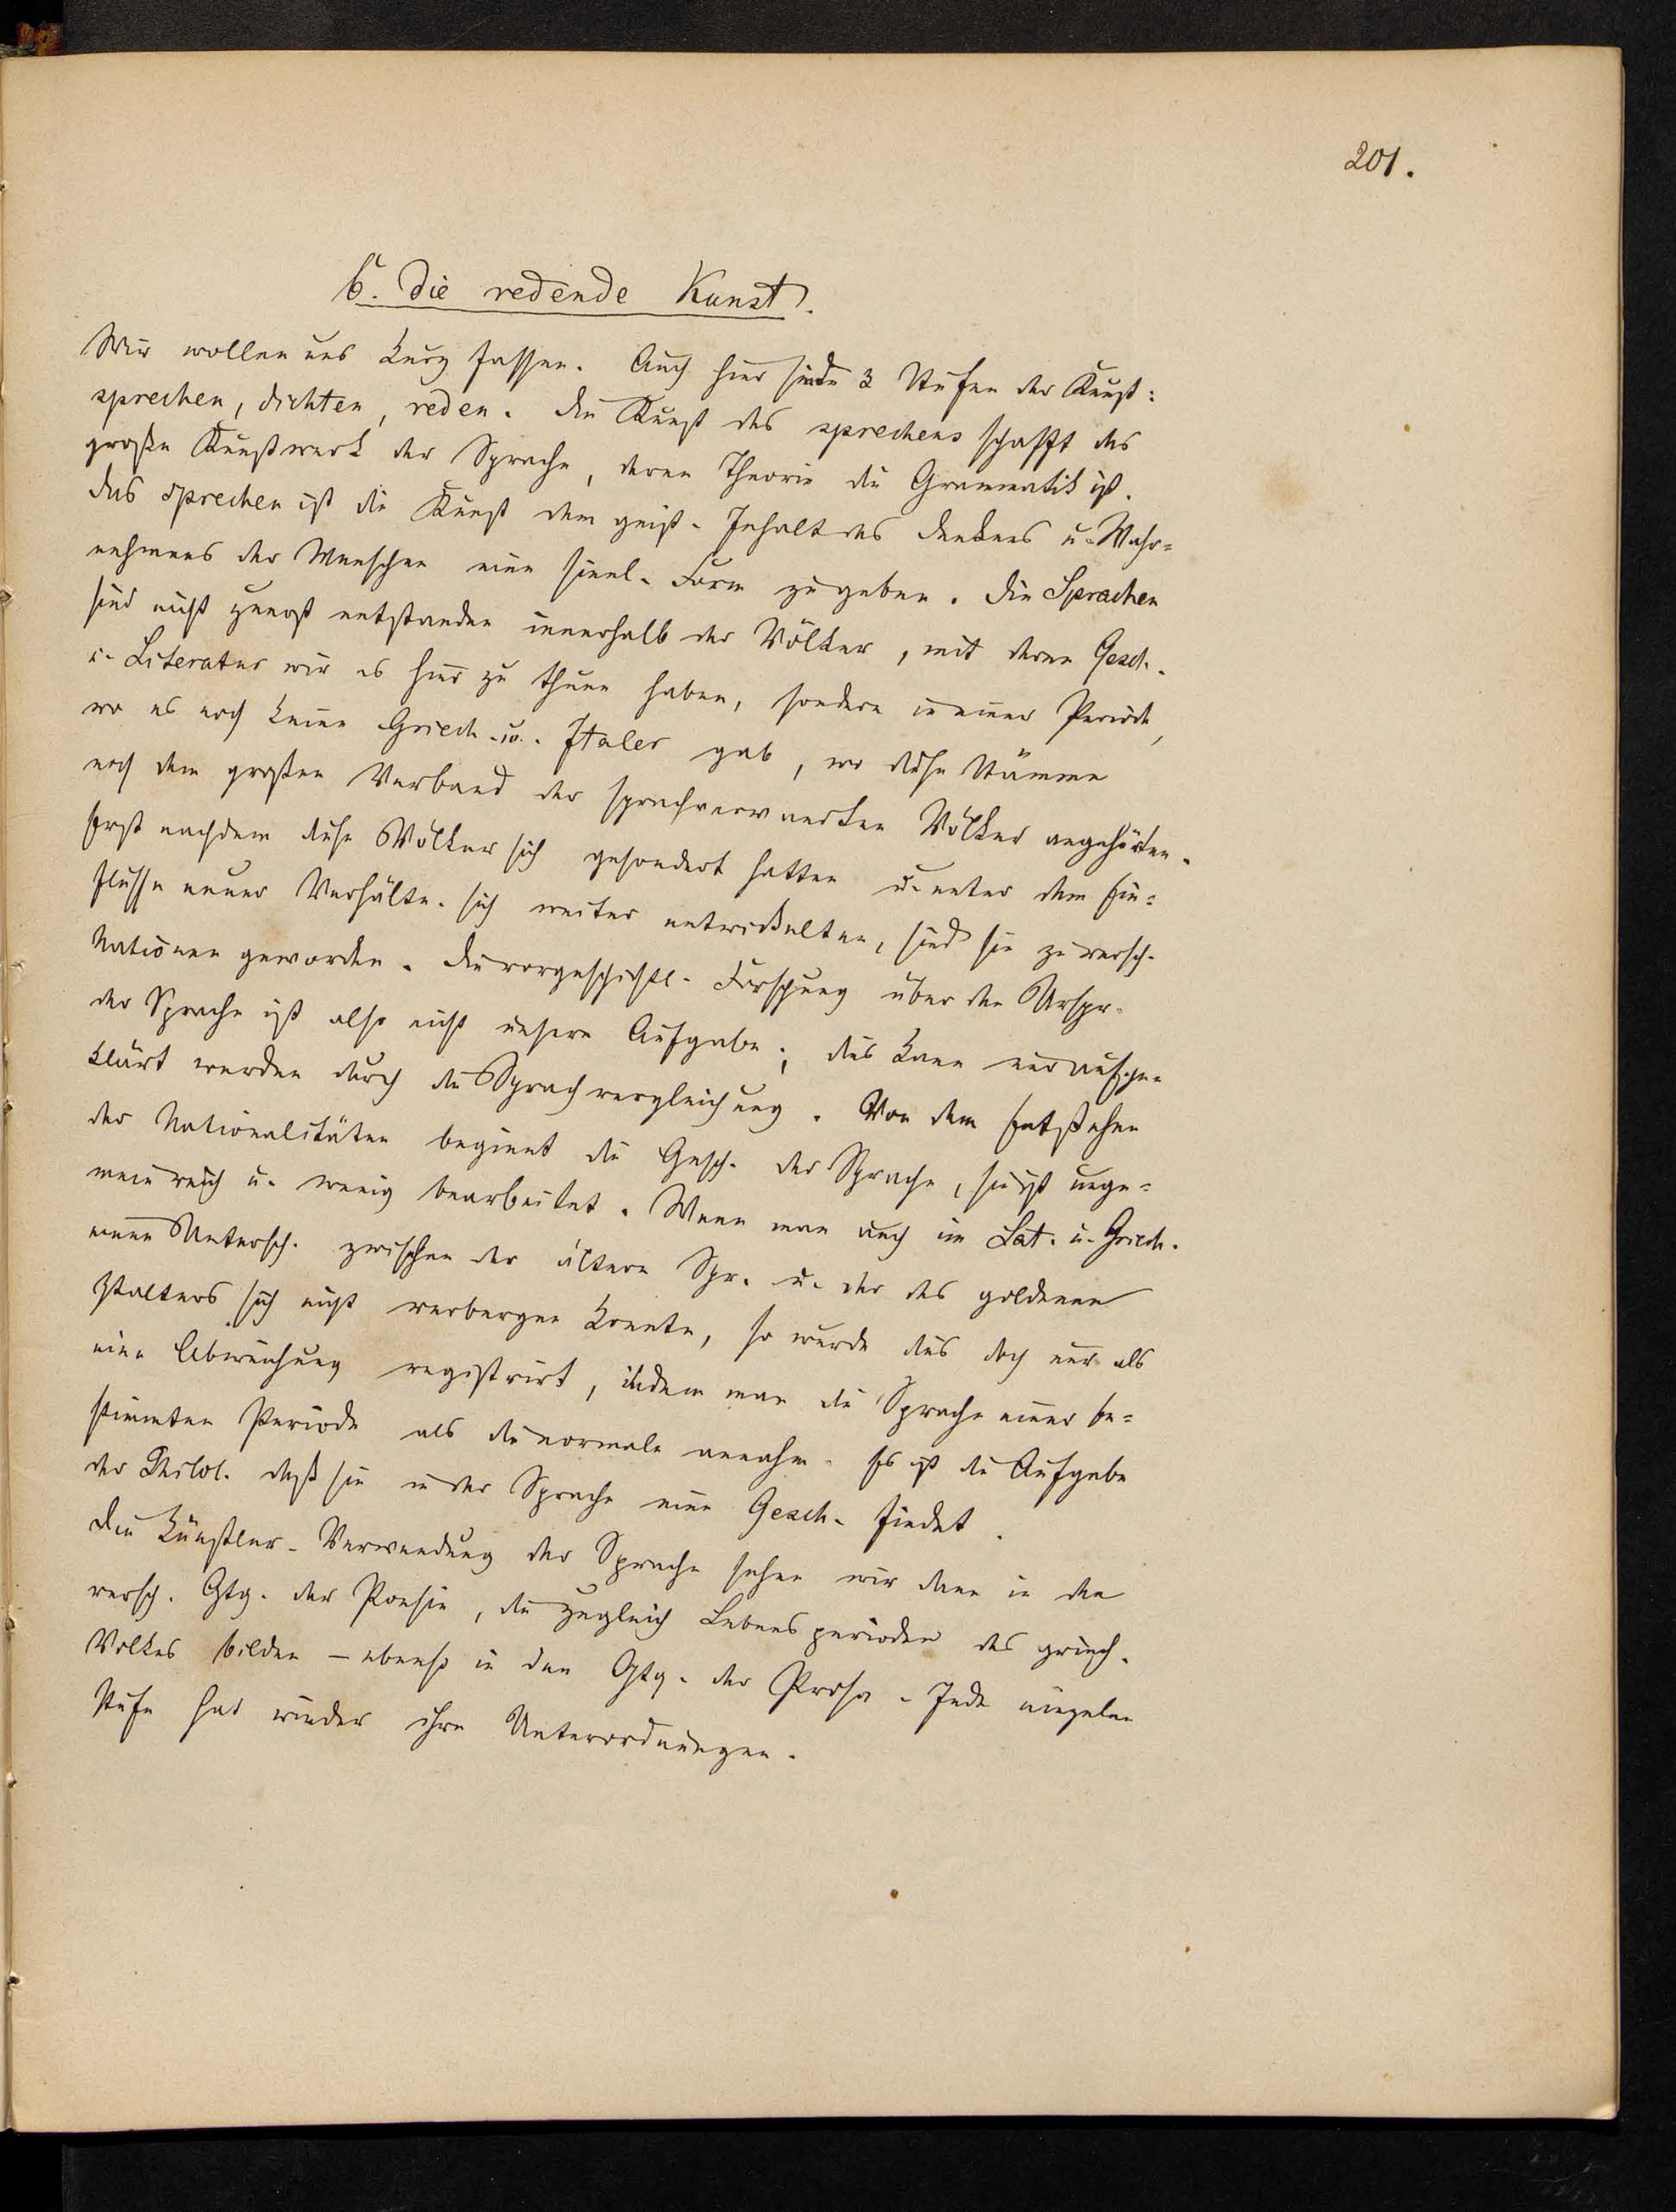 201.
6. Die redende Kunst.
Wir wollen uns kurz fassen. Auch hier sind 3 Stufen der Kunst:
sprechen, dichten, reden. Die Kunst des sprechens schafft das
große Kunstwerk der Sprache, deren Theorie die Grammatik ist.
Das Sprechen ist die Kunst dem geist. Inhalt des Denkens u. Wahr=
nehmens der Menschen eine sinnl. Form zu geben. Die Sprachen
sind nicht zuerst entstanden innerhalb der Völker, mit deren Gesch.
u. Literatur wir es hier zu thun haben, sondern in einer Periode,
wo es noch keine Griech. u. Italer gab, wo diese Stämme
noch dem großen Verband der sprachverwandten Völker angehörten.
Erst nachdem diese Völker sich gesondert hatten u. unter dem Ein=
flusse neuer Verhältn. sich weiter entwickelten, sind sie zu versch.
Nationen geworden. Die vorgeschichtl. Forschung über den Urspr.
der Sprache ist also nicht unsere Aufgabe; dies kann nur aufge=
klärt werden durch die Sprachvergleichung. Von dem Entstehen
der Nationalitäten beginnt die Gesch. der Sprache, sie ist unge=
mein reich u. wenig bearbeitet. Wenn man auch im Lat. u. Griech.
einen Untersch. zwischen der ältern Spr. u. der des goldenen
Ztalters sich nicht verbergen konnte, so wurde dies doch nur als
eine Abweichung registrirt, indem man die Sprache einer be=
stimmten Periode als die normale annahm. Es ist die Aufgabe
der Philol. daß sie in der Sprache eine Gesch. findet.
Die künstler. Verwendung der Sprache sehen wir dann in den
versch. Gtg. der Poesie, die zugleich Lebensperioden des griech.
Volkes bilden – ebenso in den Gtg. der Prosa. Jede einzelne
Stufe hat wieder ihre Unterordnungen.